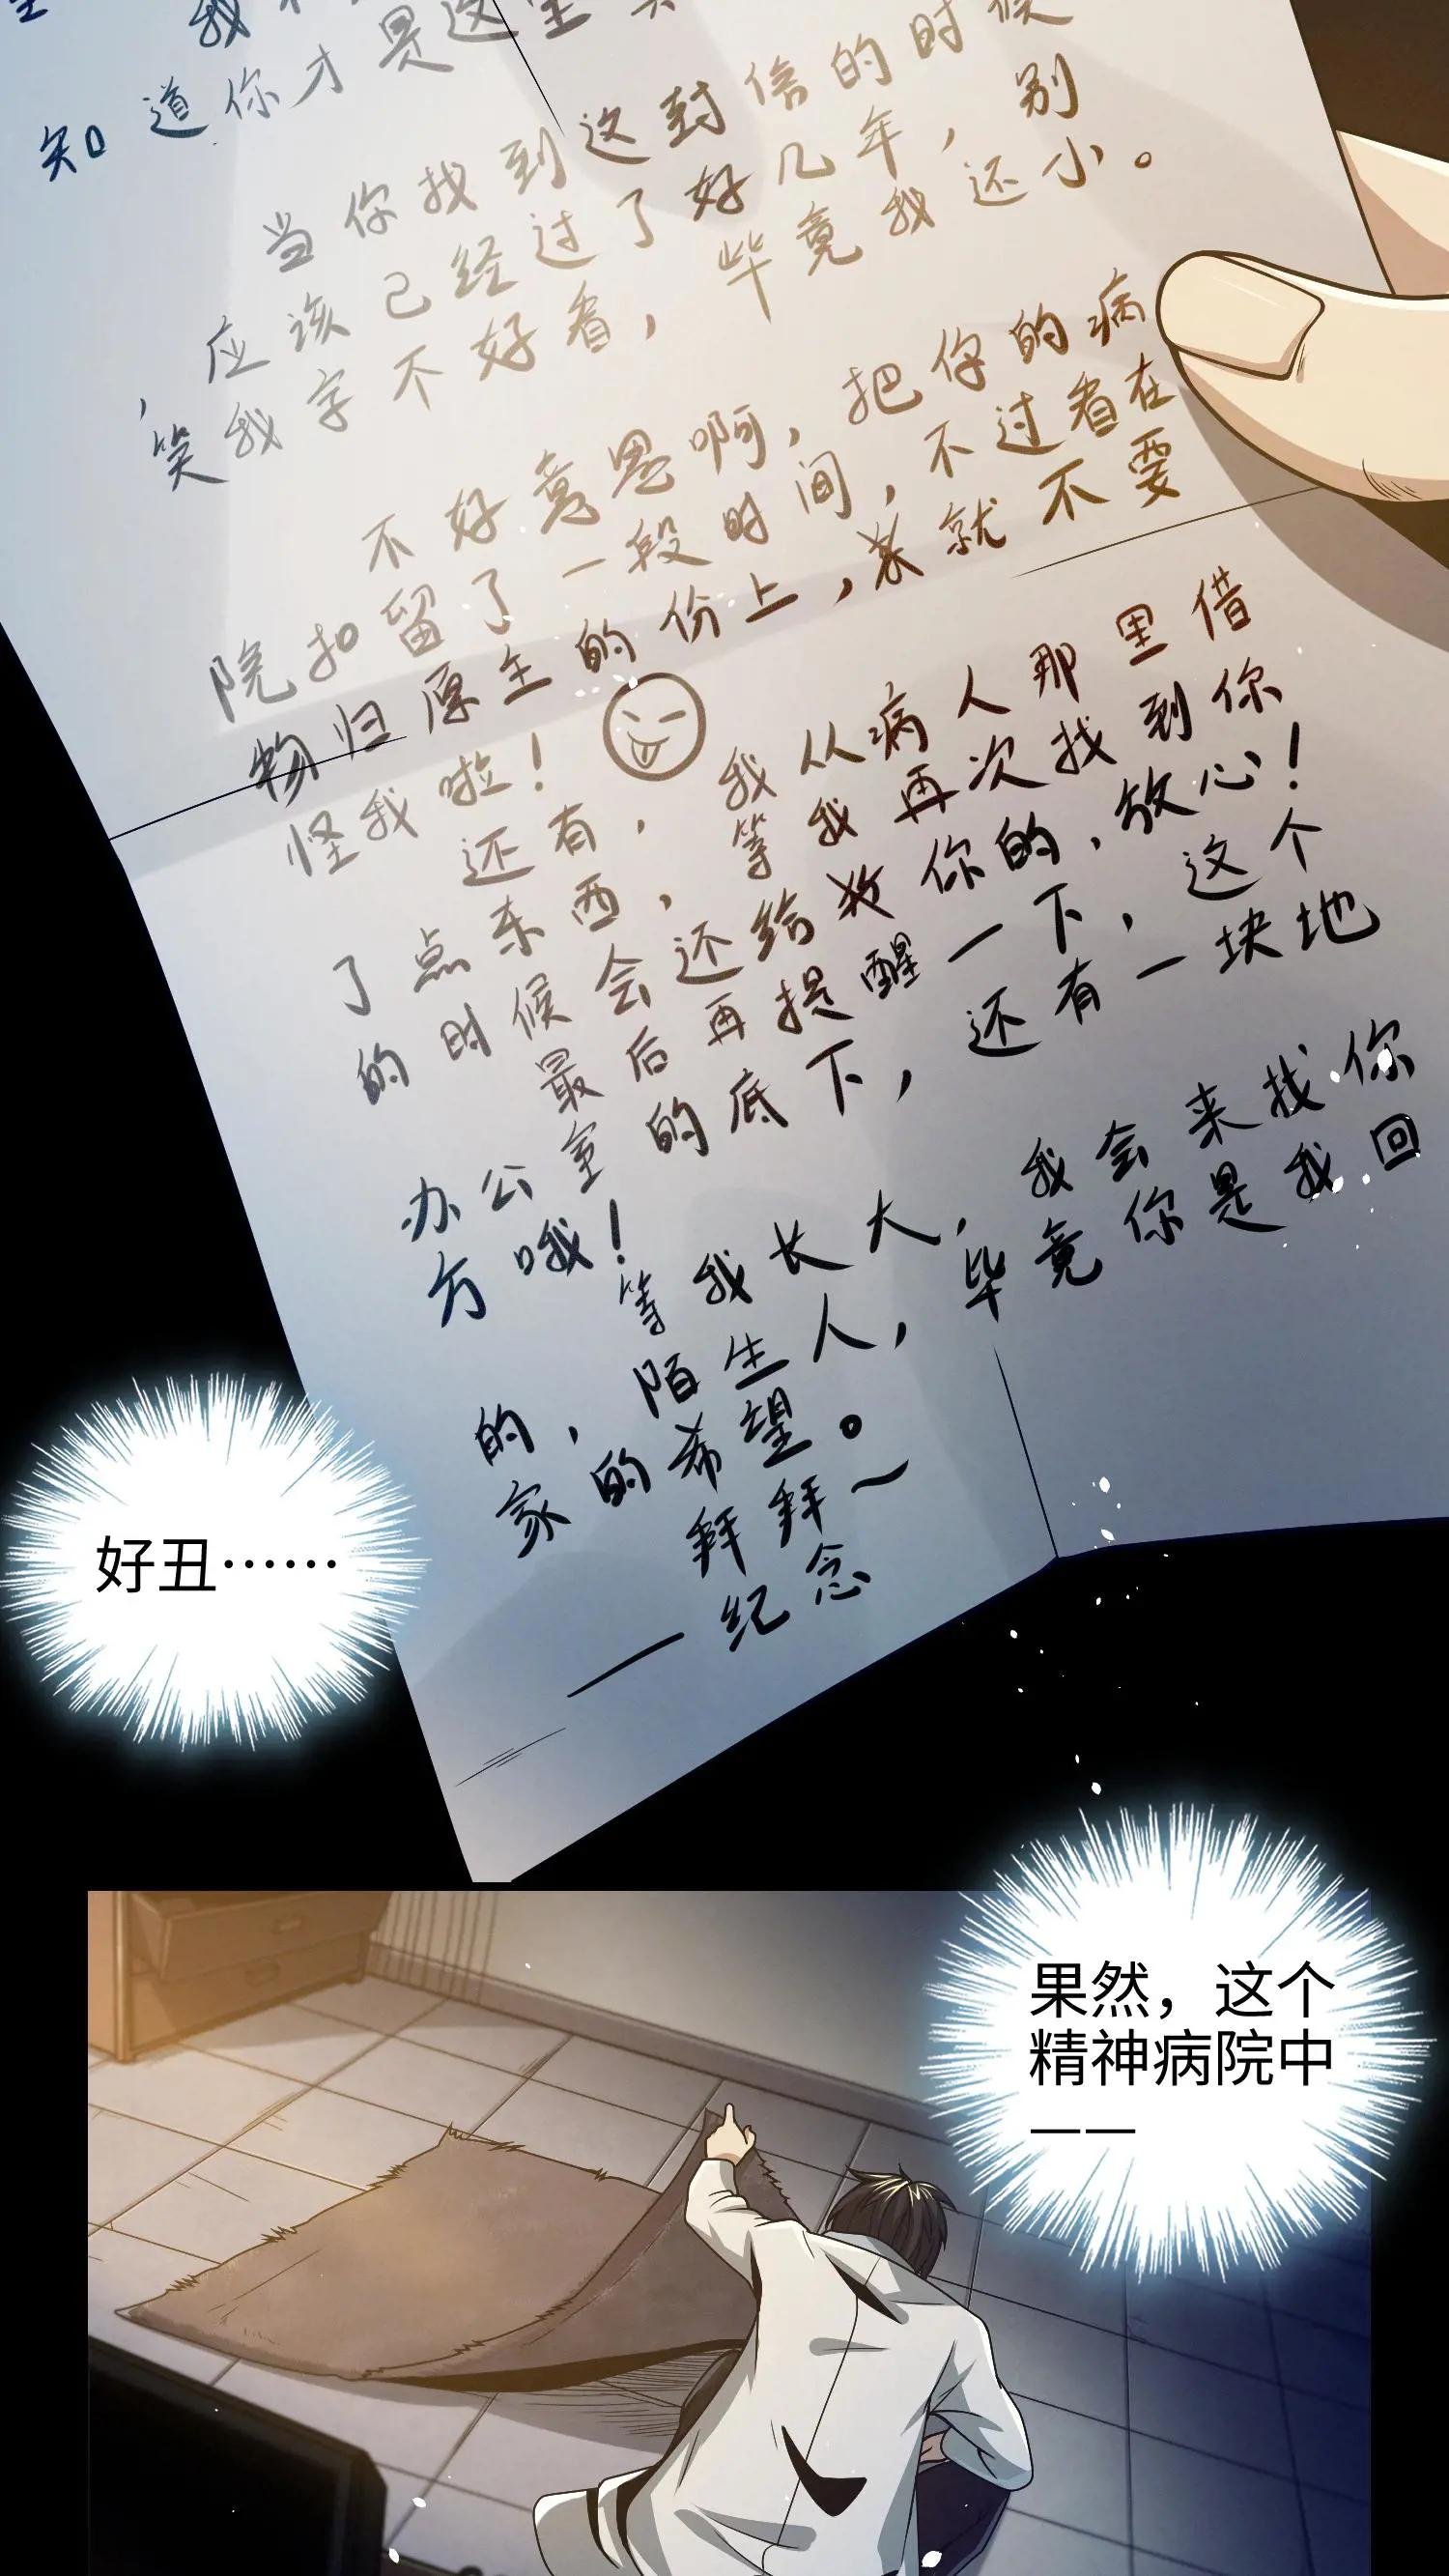 知道你才是这里
当你找到这封信的时候
，应该已经过了好几年，别
笑我字不好看，毕竟我还小。
不好意思啊，把你的病
院扣留了一段时间，不过看在
物归原主的份上，就不要
怪我啦！
还有，我从病人那里借
了点东西，等我再次找到你
的时候会还给你的，放心！
最后再提醒一下，这个
办公室的底下，还有一块地
方哦！
等我长大，我会来找你
的，陌生人，毕竟你是我回
家的希望。
拜拜～
—纪念
好丑……
果然，这个
精神病院中
——